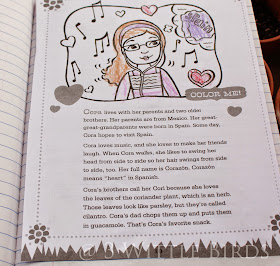 COLOR ME!
Cora lives with her parents and two older
brothers. Her parents are from Mexico. Her great-
great-grandparents were born in Spain. Some day,
Cora hopes to visit Spain.
Cora loves music, and she loves to make her friends
laugh. When Cora walks, she likes to swing her
head from side to side so her hair swings from side
to side, too. Her full name is Corazón. Corazón
means "heart" in Spanish.
Cora's brothers call her Cori because she loves
the leaves of the coriander plant, which is an herb.
Those leaves look like parsley, but they're called
cilantro. Cora's dad chops them up and puts them
in guacamole. That's Cora's favorite snack.